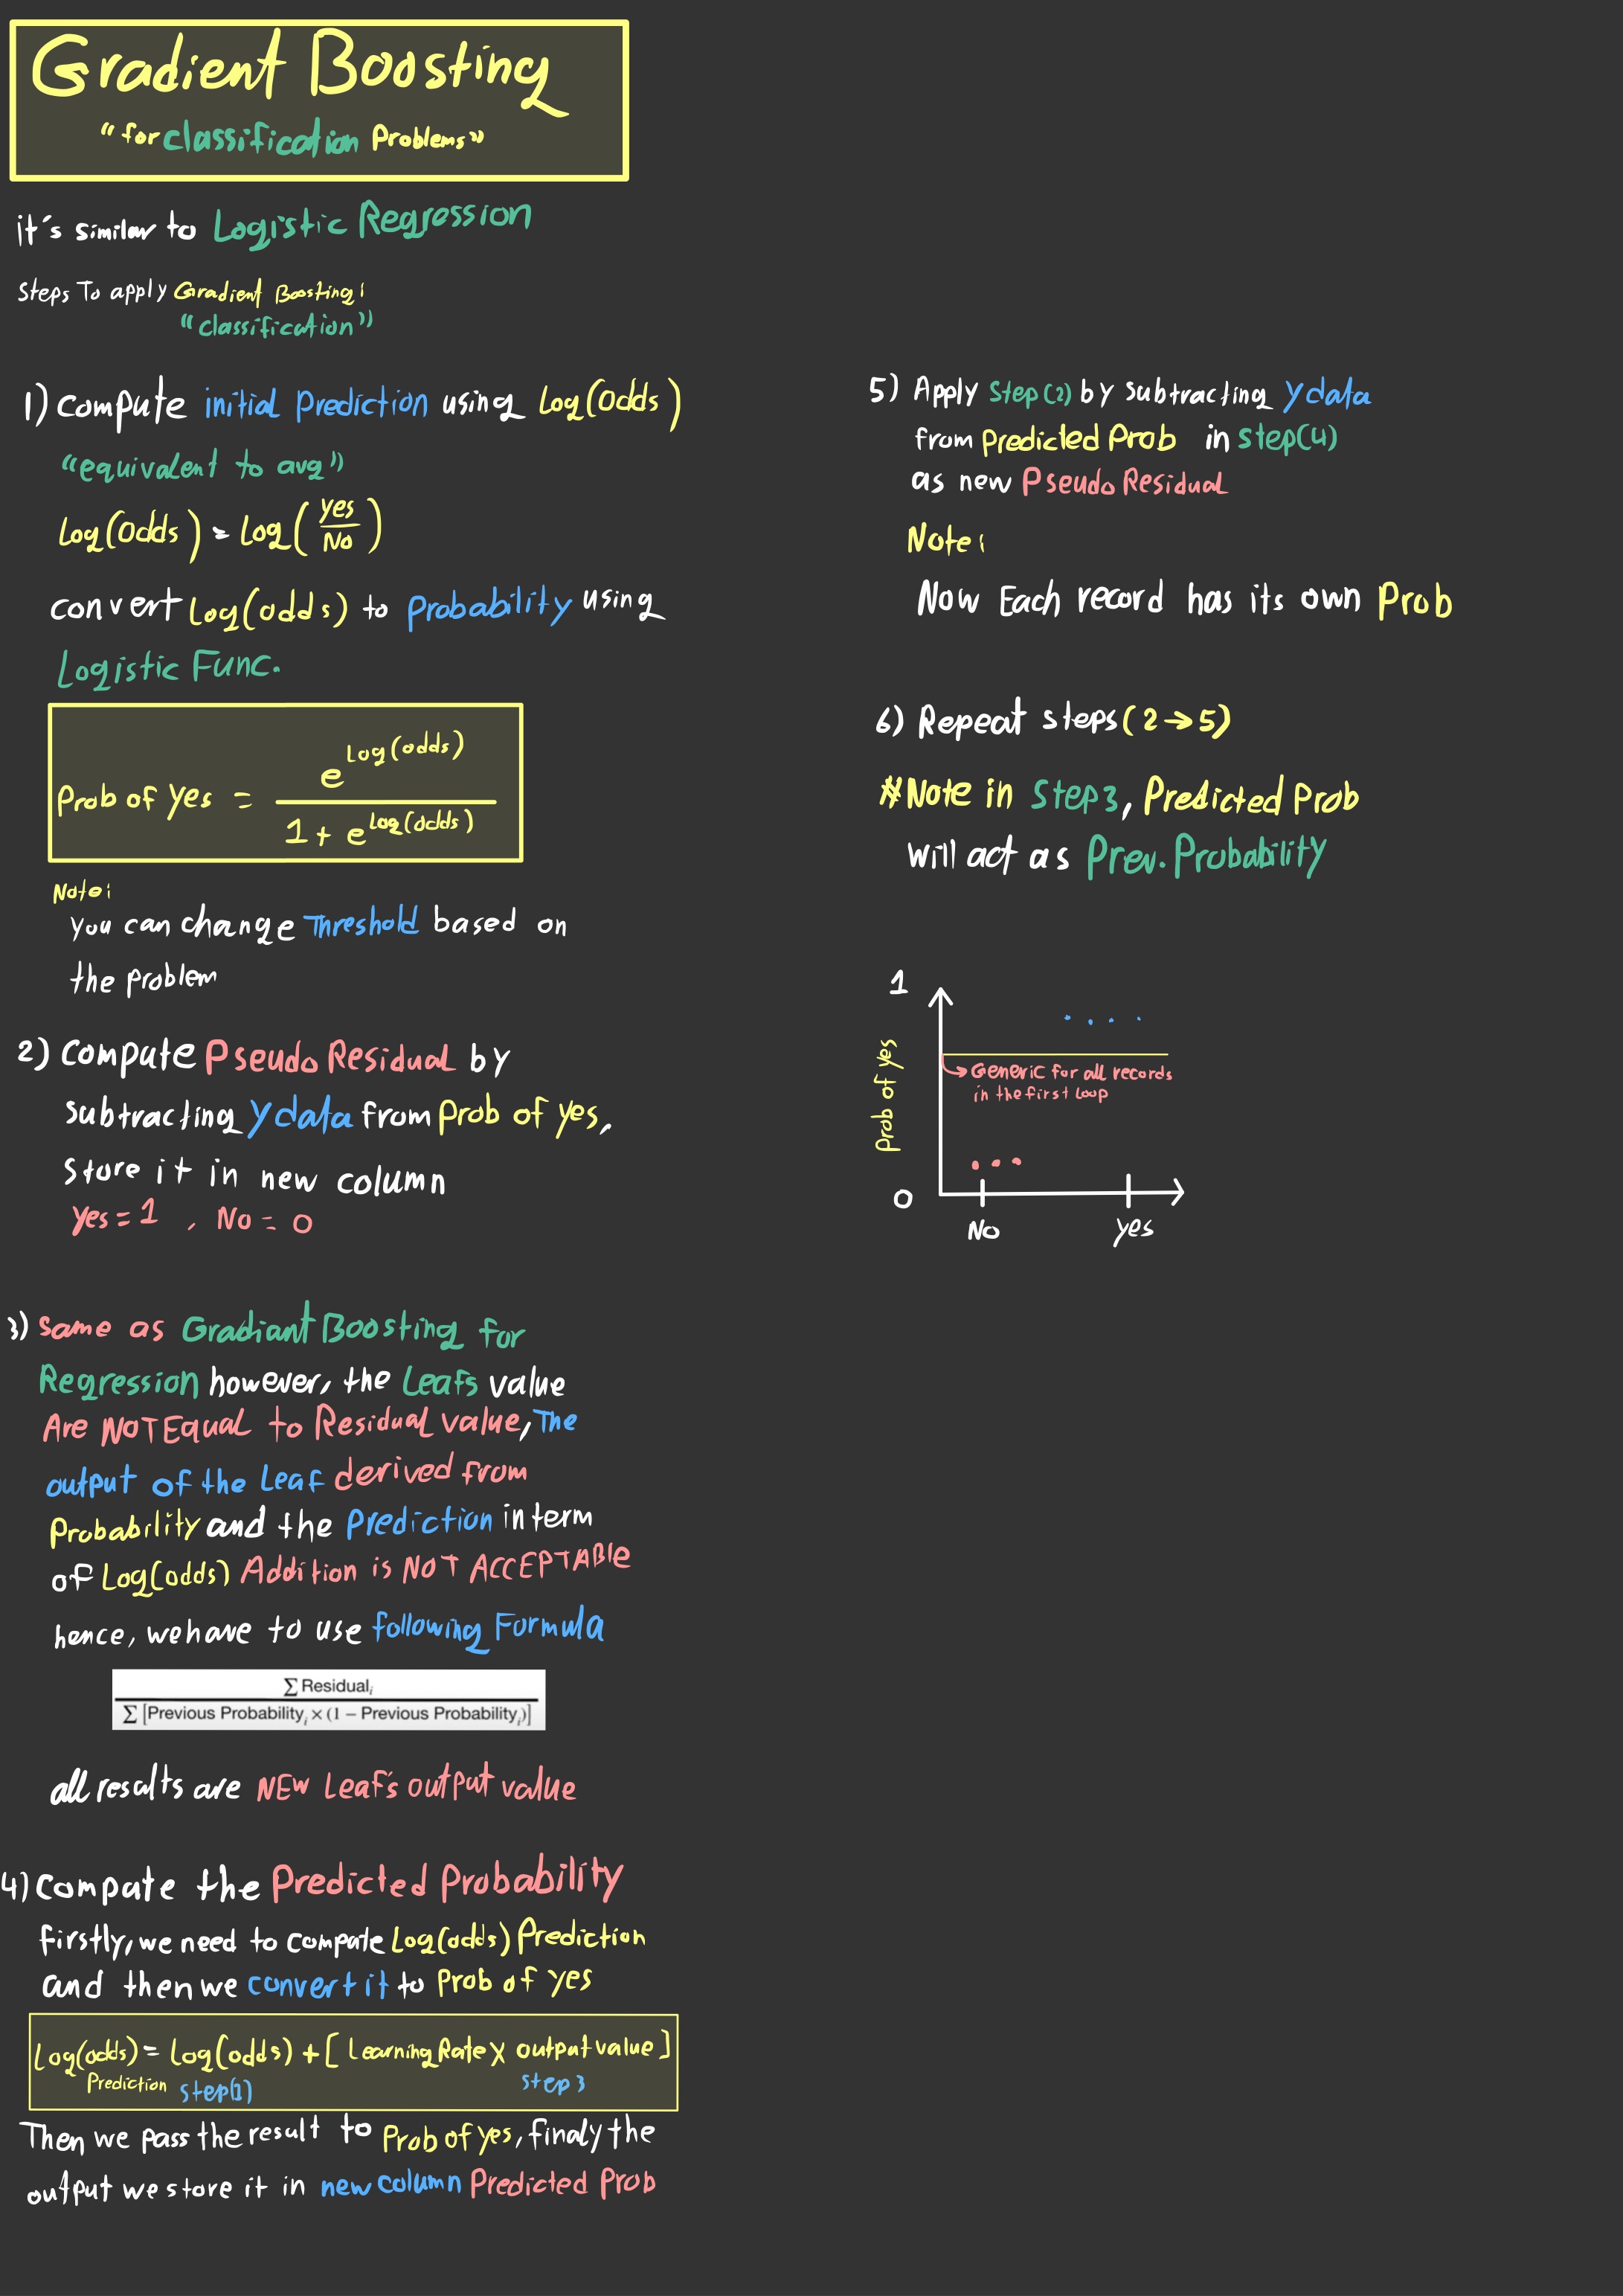 Gradient Boosting
“for classification Problems”
it's similar to Logistic Regression
Steps To apply Gradient Boosting:
“classification”
1) Compute initial Prediction using Log(Odds)
“equivalent to avg”
Log(Odds) = Log(Yes/No)
convert Log(odds) to Probability using
Logistic Func.
Prob of Yes = e^Log(odds) / 1 + e^Log(odds)
Note:
You can change Threshold based on
the problem
2) Compute Pseudo Residual by
subtracting Ydata from Prob of yes,
Store it in new column
Yes = 1 , No = 0
3) Same as Gradiant Boosting for
Regression however, the Leafs value
Are NOT Equal to Residual value, The
output of the Leaf derived from
Probability and the Prediction in term
of Log(odds) Addition is NOT ACCEPTABle
hence, we have to use following Formula
∑ Residualᵢ
∑ [Previous Probabilityᵢ × (1 − Previous Probabilityᵢ)]
all results are NEW Leaf's output value
4) Compute the Predicted Probability
firstly, we need to compute Log(odds) Prediction
and then we convert it to Prob of Yes
Log(odds) = Log(odds) + [Learning Rate X output value]
Prediction step(1) step 3
Then we pass the result to Prob of yes, finaly the
output we store it in new column Predicted Prob
5) Apply Step(2) by subtracting Ydata
from Predicted Prob in step(4)
as new Pseudo Residual
Note:
Now Each record has its own Prob
6) Repeat steps (2→5)
#Note in Step 3, Predicted Prob
will act as Prev. Probability
1
Prob of yes
Generic for all records
in the first Loop
0
No Yes